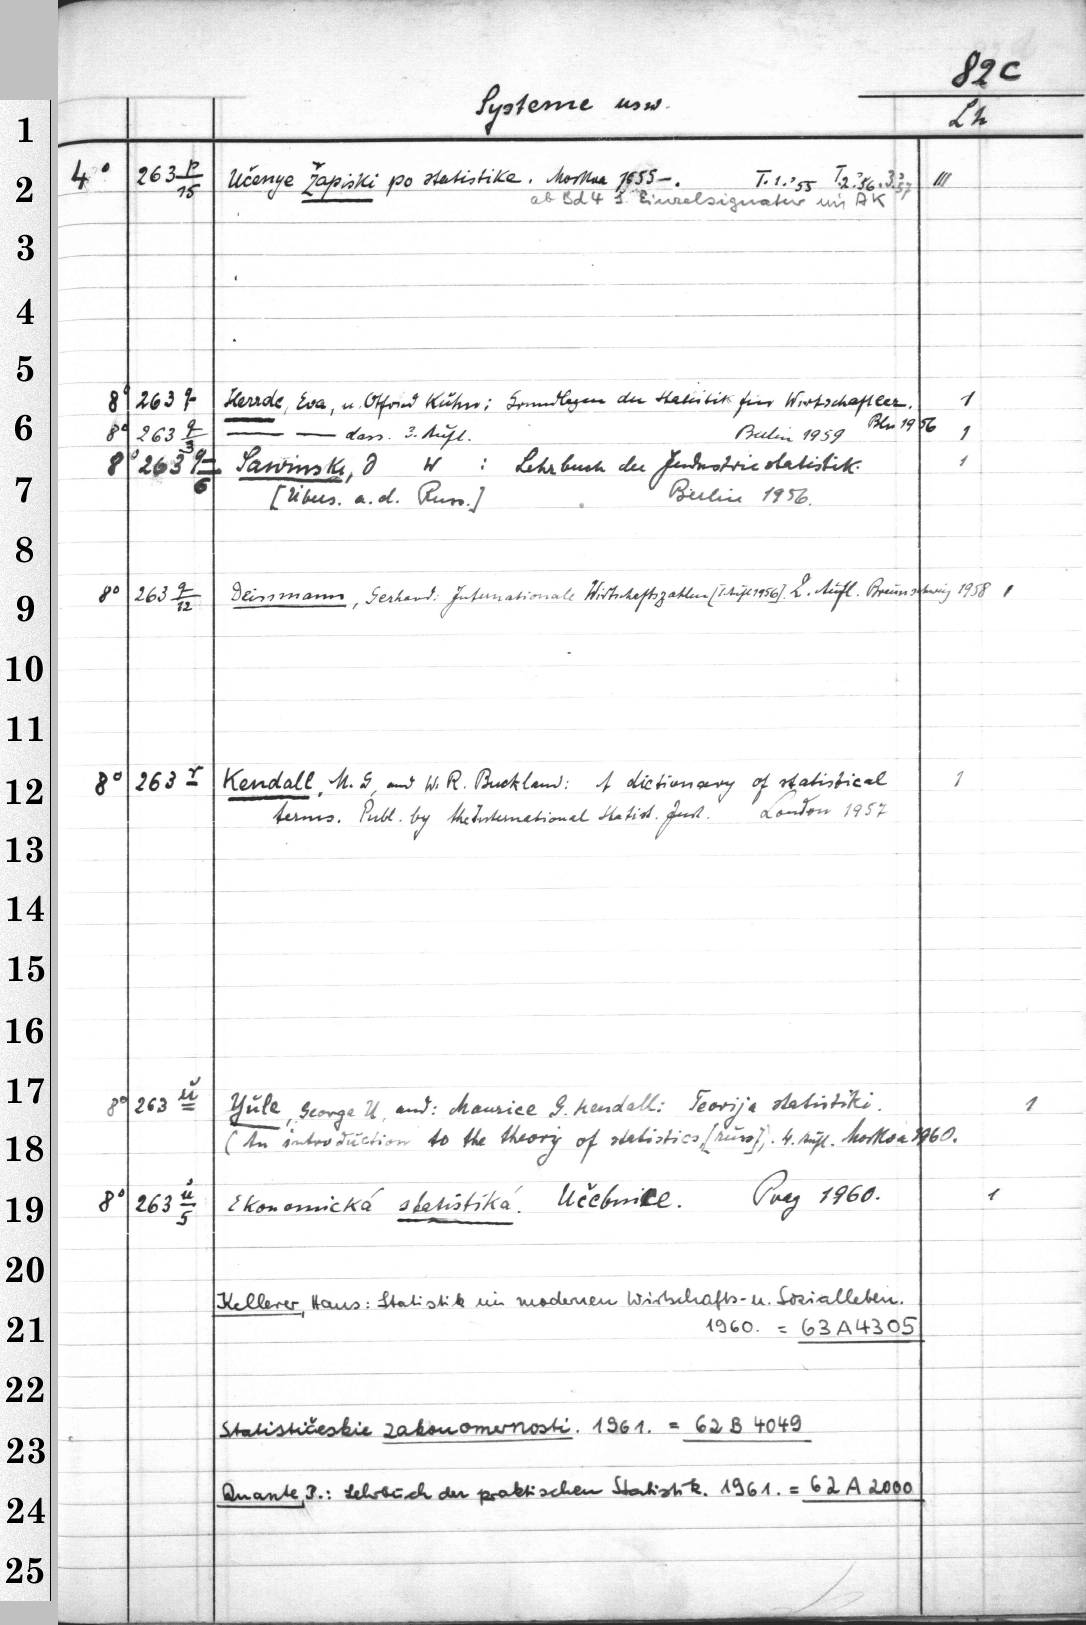 82c
Systeme usw.
Lh
1
2 4° 263 p/15 Učenye Zapiski po statistike. Moskva 1955–. T.1.'55 T.2.'56. 3.'57 III
ab Bd 4 s. Einzelsignatur im AK
3
4
5
8° 263 q Herrde, Eva, u. Otfried Kuhn: Grundlagen der Statistik für Wirtschaftler. Bln 1956 1
6 8° 263 q/3 — — dass. 3. Aufl. Berlin 1959 1
8° 263 q/6 Sawinski, D W : Lehrbuch der Industriestatistik. 1
7 [Übers. a. d. Russ.] Berlin 1956.
8
9 8° 263 q/12 Deissmann, Gerhard: Internationale Wirtschaftszahlen [1. Aufl 1956]. 2. Aufl. Braunschweig 1958 1
10
11
12 8° 263 r Kendall, M. G, and W. R. Buckland: A dictionary of statistical 1
terms. Publ. by the International Statist. Inst. London 1957
13
14
15
16
17 8° 263 u Yule, George U, and: Maurice G. Kendall: Teorija statistiki. 1
18 (An introduction to the theory of statistics, [russ]). 4. Aufl. Moskva 1960.
19 8° 263 u/5 Ekonomická statistiká. Učebnice. Prag 1960. 1
20
Kellerer, Hans: Statistik im modernen Wirtschafts- u. Sozialleben.
21 1960. = 63 A 4305
22
23 Statističeskie zakonomernosti. 1961. = 62 B 4049
24 Quante, P.: Lehrbuch der praktischen Statistik. 1961. = 62 A 2000
25